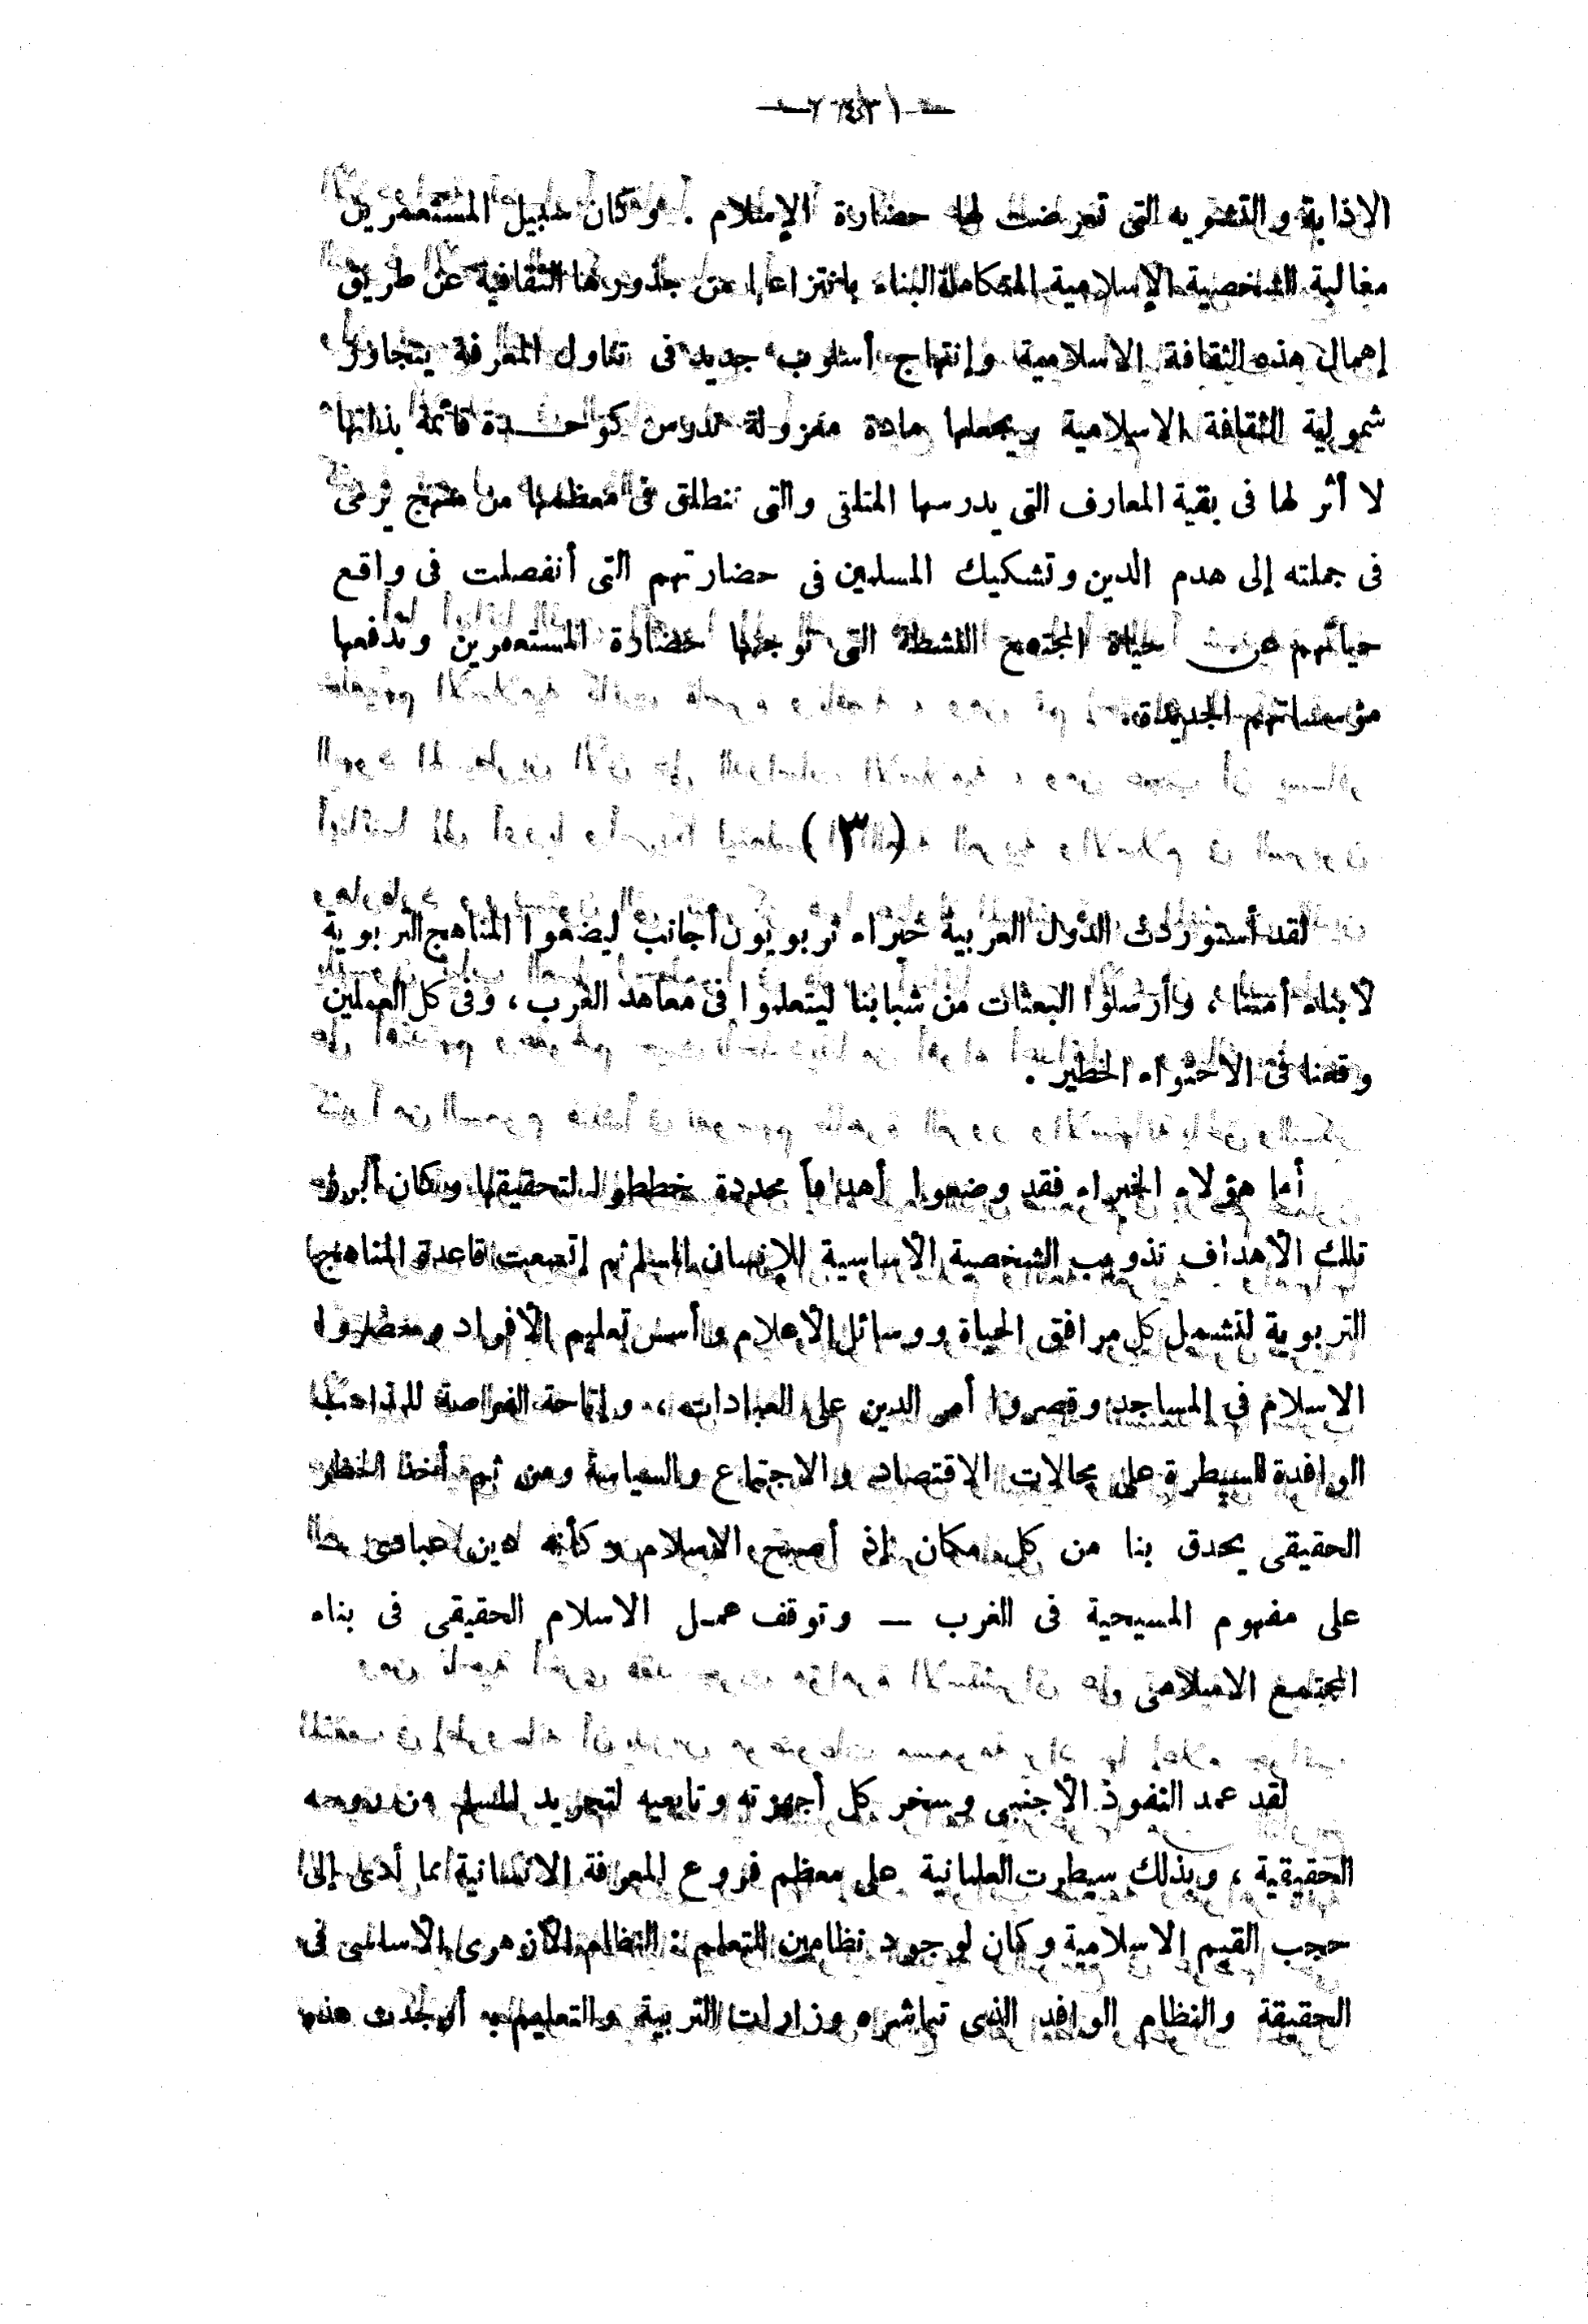 الاذابة والتشويه التى تعرضت لها حضارة الإسلام . وكان سبيل المستعمرين
مغالبة الشخصية الإسلامية المتكاملة البناء بانتزاعها من جذورها الثقافية عن طريق
إهمال هذه الثقافة الاسلامية وإنتهاج أسلوب جديد فى تناول المعرفة يتجاوز
شمولية الثقافة الاسلامية ويجعلها مادة معزولة تدرس كوحدة قائمة بذاتها
لا أثر لها فى بقية المعارف التى يدرسها المتلقى والتى تنطلق فى معظمها من منهج يرمى
فى جملته إلى هدم الدين وتشكيك المسلمين فى حضارتهم التى أنفصلت فى واقع
حياتهم عن حياة المجتمع النشطة التى توجهها حضارة المستعمرين وتدفعها
مؤسساتهم الجديدة.
(٣)
لقد أستوردت الدول العربية خبراء تربويون أجانب ليضعوا المناهج التربوية
لابناء أمتنا ، وأرسلوا البعثات من شبابنا ليتعلموا فى معاهد الغرب ، وفى كل العملين
وقعنا فى الاحتواء الخطير .
أما هؤلاء الخبراء فقد وضعوا أهدافاً محددة خططوا لتحقيقها وكان أبرز
تلك الأهداف تذويب الشخصية الأساسية للإنسان المسلم ثم إتسعت قاعدة المناهج
التربوية لتشمل كل مرافق الحياة ووسائل الأعلام وأسس تعليم الأفراد وحصروا
الاسلام فى المساجد وقصروا أمر الدين على العبادات ، وإتاحة الفرصة للمذاهب
الوافدة للسيطرة على مجالات الاقتصاد والاجتماع والسياسة ومن ثم أخذ الخطر
الحقيقى يحدق بنا من كل مكان إذ أصبح الاسلام وكأنه دين عبادى
على مفهوم المسيحية فى الغرب — وتوقف عمل الاسلام الحقيقى فى بناء
المجتمع الاسلامى
لقد عمد النفوذ الأجنبى وسخر كل أجهزته وتابعيه لتجريد المسلم من روحه
الحقيقية ، وبذلك سيطرت العلمانية على معظم فروع المعرفة الانسانية مما أدى إلى
حجب القيم الاسلامية وكان لوجود نظامين للتعلم : النظام الأزهرى الأساسى فى
الحقيقة والنظام الوافد الذى تباشره وزارات التربية والتعليم أن جدت هذه